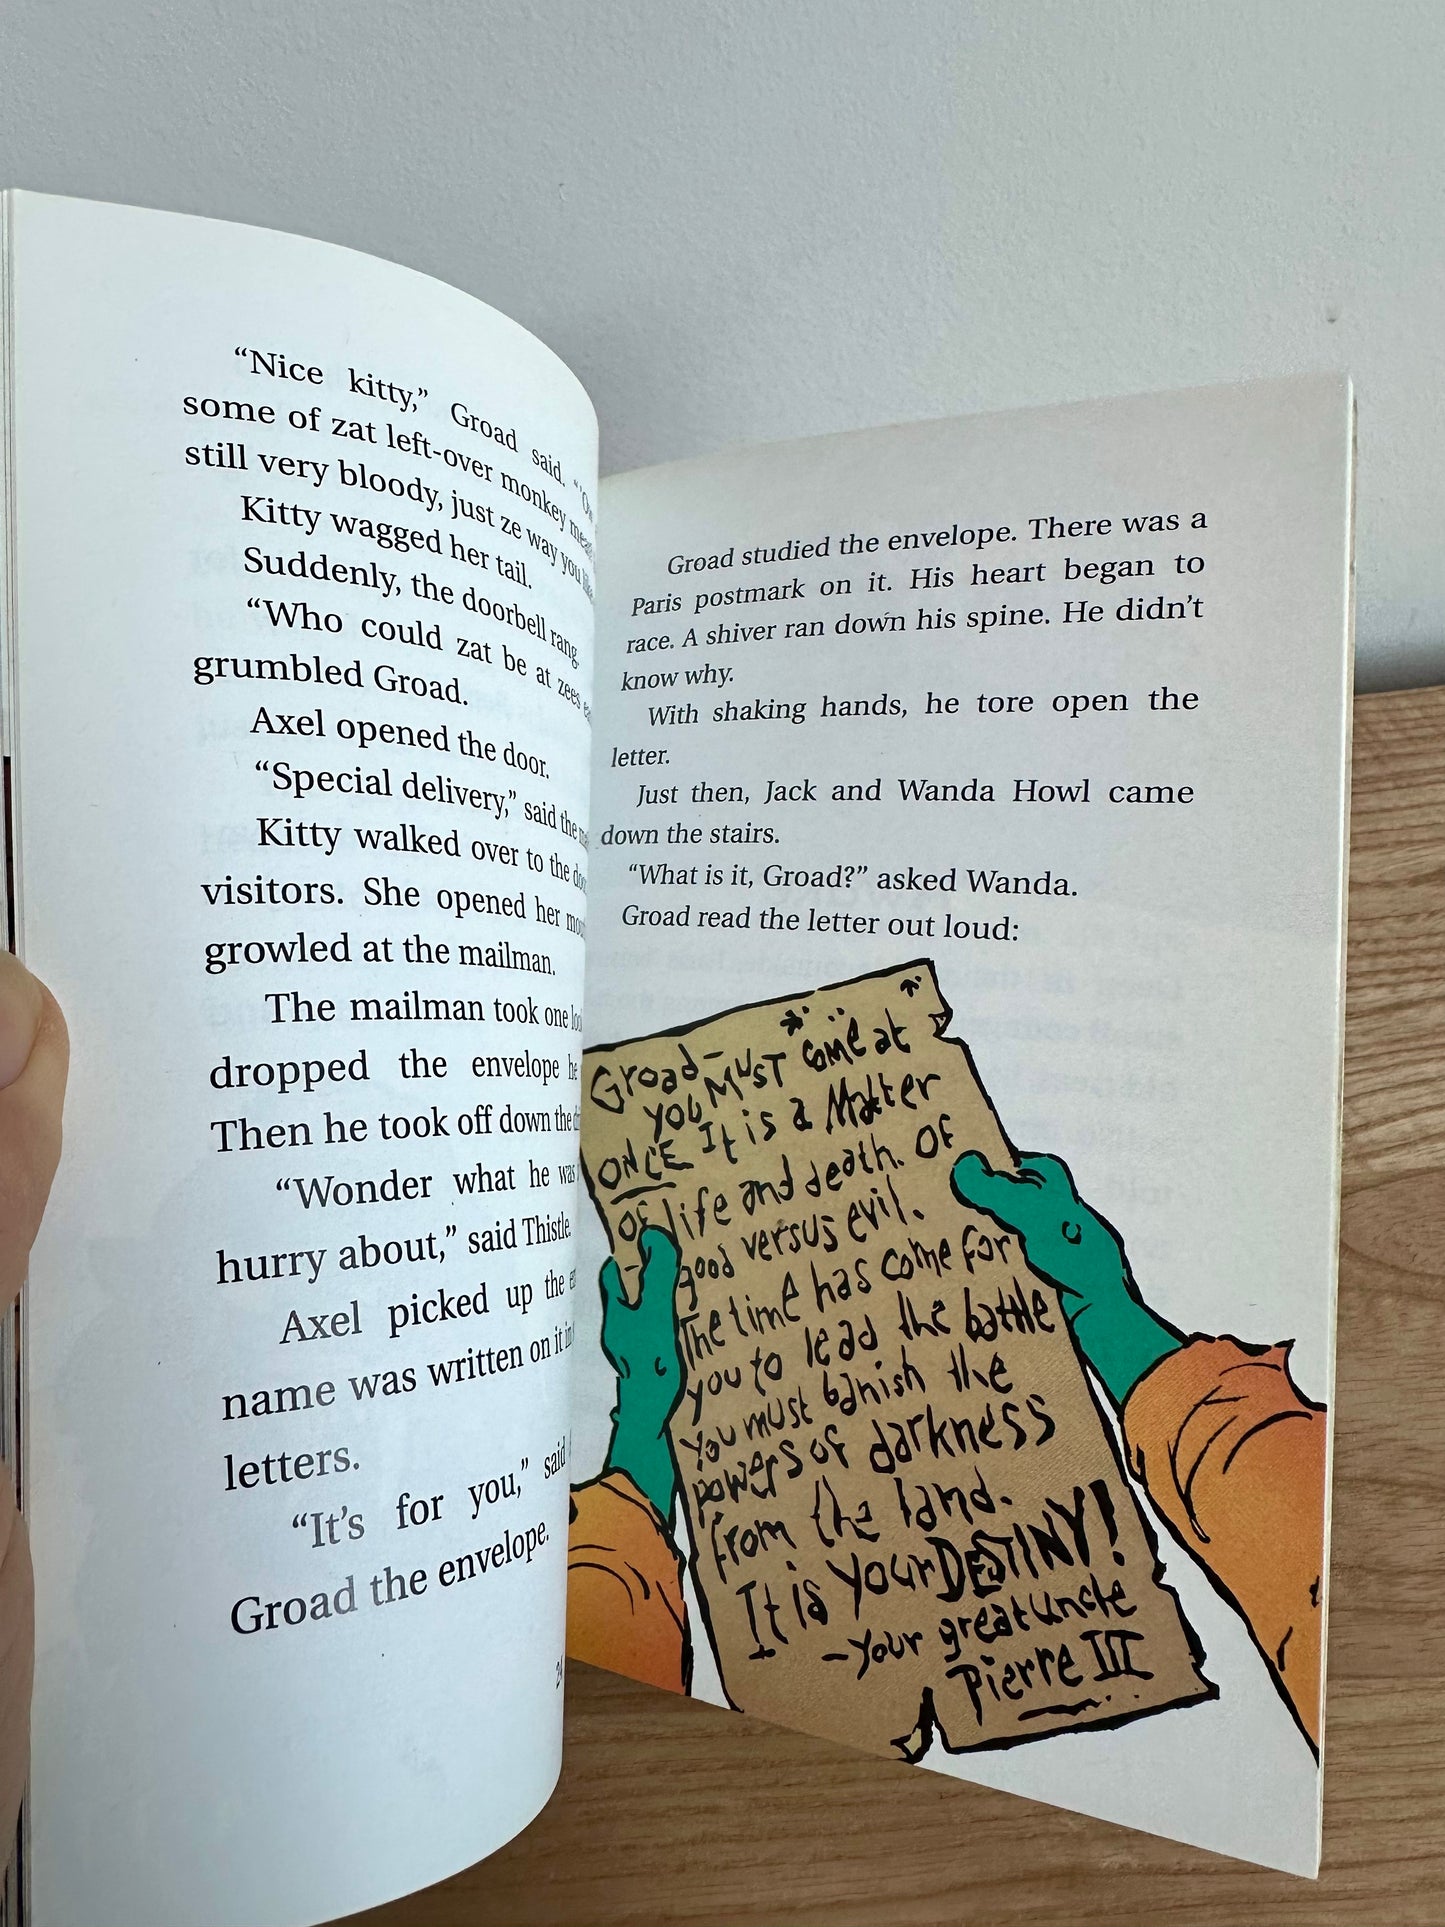 “Nice kitty,” Groad said.
some of zat left-over monkey
still very bloody, just ze way you
Kitty wagged her tail.
Suddenly, the doorbell rang.
“Who could zat be at zees
grumbled Groad.
Axel opened the door.
“Special delivery,” said the
Kitty walked over to the
visitors. She opened her
growled at the mailman.
The mailman took one
dropped the envelope
Then he took off down the
“Wonder what he was
hurry about,” said Thistle.
Axel picked up the
name was written on it in
letters.
“It’s for you,” said
Groad the envelope.
Groad studied the envelope. There was a
Paris postmark on it. His heart began to
race. A shiver ran down his spine. He didn’t
know why.
With shaking hands, he tore open the
letter.
Just then, Jack and Wanda Howl came
down the stairs.
“What is it, Groad?” asked Wanda.
Groad read the letter out loud:
Groad–
you MUST come at
ONCE It is a Matter
of life and death. OF
good versus evil.
The time has come for
you to lead the battle
You must banish the
powers of darkness
from the land.
It is your DESTINY!
–your great uncle
Pierre III